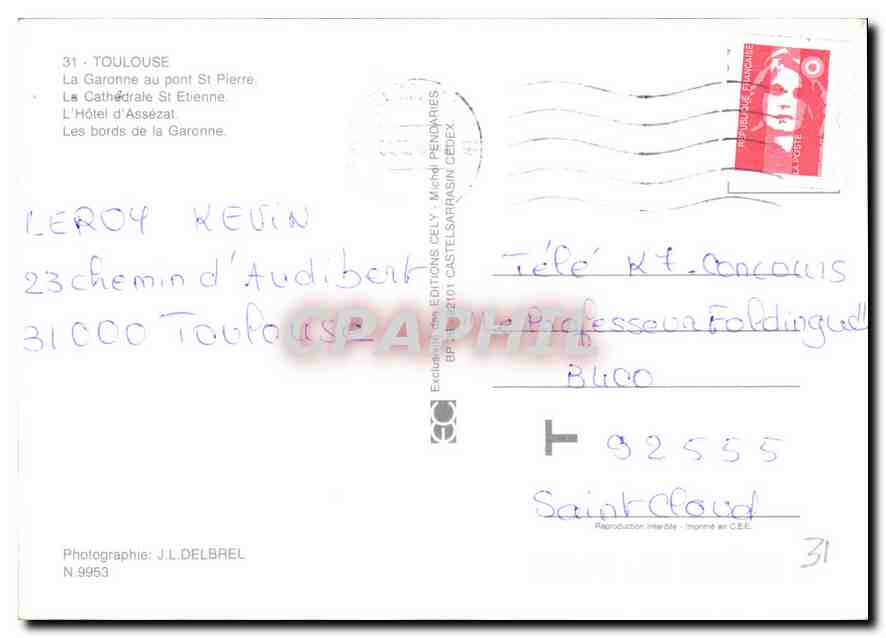 31 - TOULOUSE
La Garonne au pont St Pierre.
La Cathédrale St Etienne.
L'Hôtel d'Assézat.
Les bords de la Garonne.
LEROY KEVIN
23 chemin d'Audibert
31000 Toulouse
Photographie: J.L.DELBREL
N 9953
Exclusivité des EDITIONS CELY - Michel PENDARIES
82101 CASTELSARRASIN CEDEX
EC
REPUBLIQUE FRANÇAISE
LA POSTE
Télé K7. Concours
"Le Professeur Foldingue"
B400
T
92555
Saint Cloud
Reproduction interdite - Imprimé en C.E.E.
31
CPAPHIL